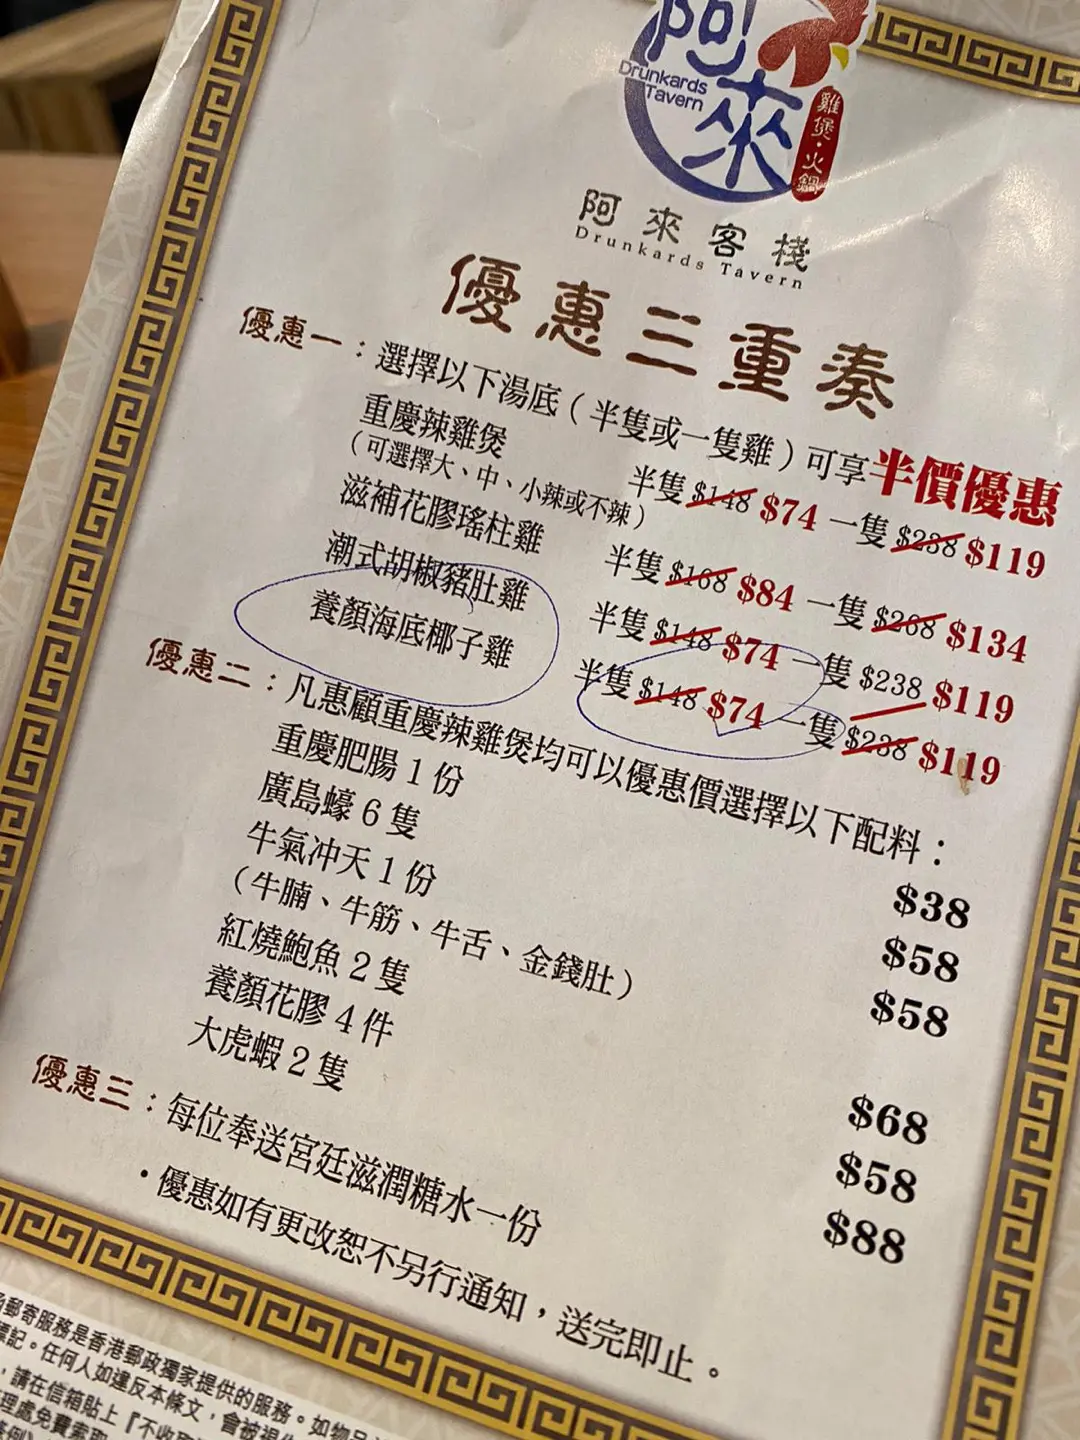 阿來
Drunkards
Tavern
雞煲·火鍋
阿來客棧
Drunkards Tavern
優惠三重奏
優惠一：選擇以下湯底（半隻或一隻雞）可享半價優惠
重慶辣雞煲 半隻 $148 $74 一隻 $238 $119
（可選擇大、中、小辣或不辣）
滋補花膠瑤柱雞 半隻 $168 $84 一隻 $268 $134
潮式胡椒豬肚雞 半隻 $148 $74 一隻 $238 $119
養顏海底椰子雞 半隻 $148 $74 一隻 $238 $119
優惠二：凡惠顧重慶辣雞煲均可以優惠價選擇以下配料：
重慶肥腸 1 份 $38
廣島蠔 6 隻 $58
牛氣冲天 1 份 $58
（牛腩、牛筋、牛舌、金錢肚）
紅燒鮑魚 2 隻 $68
養顏花膠 4 件 $58
大虎蝦 2 隻 $88
優惠三：每位奉送宮廷滋潤糖水一份
•優惠如有更改恕不另行通知，送完即止。
郵寄服務是香港郵政獨家提供的服務。如物
標記。任何人如違反本條文，會被視
，請在信箱貼上『不收
理處免費索取